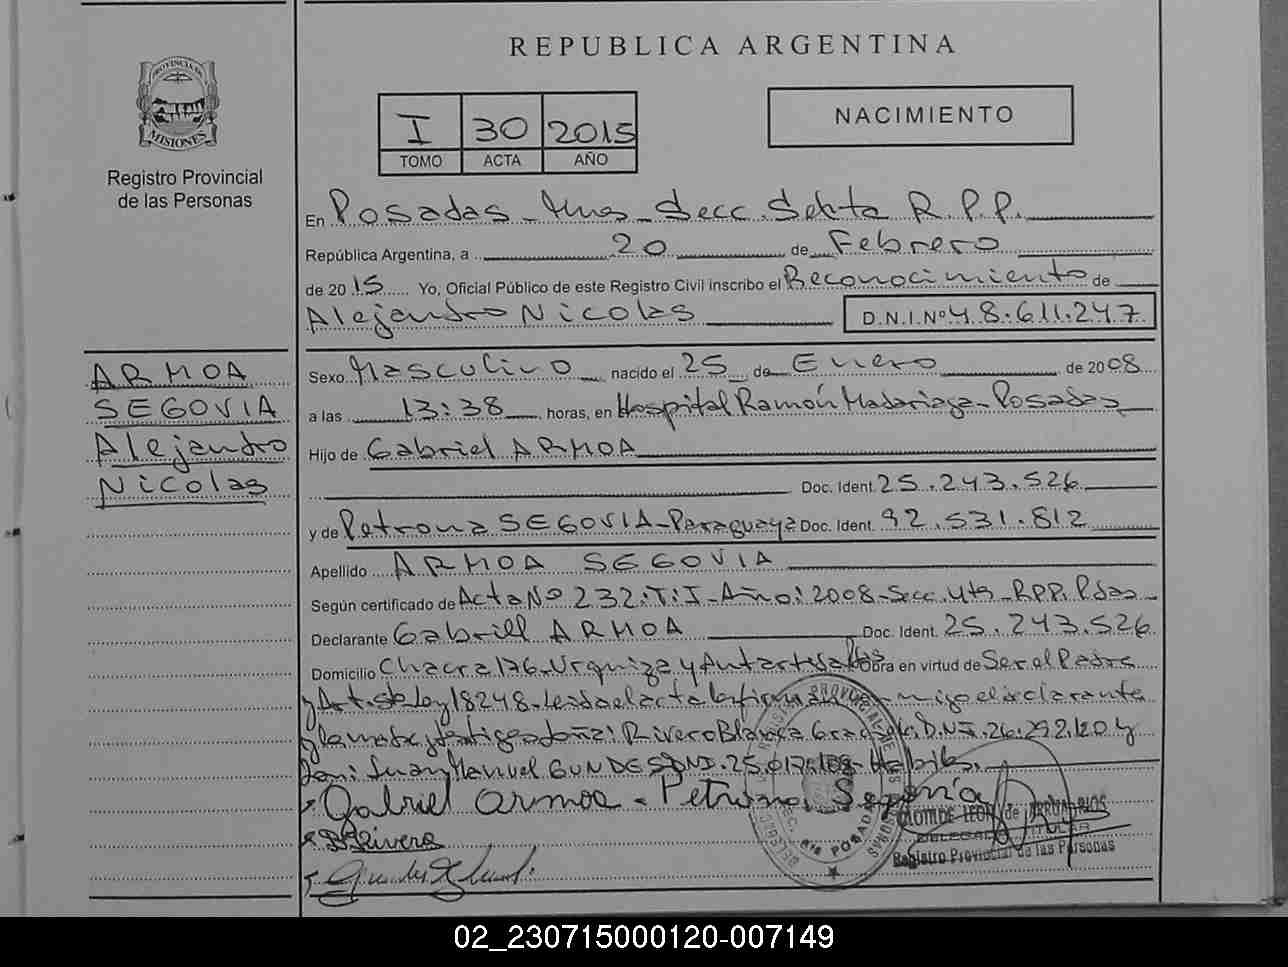 REPUBLICA ARGENTINA
PROVINCIA DE
MISIONES
Registro Provincial
de las Personas
I 30 2015
TOMO ACTA AÑO
NACIMIENTO
En Posadas - Mnes - Secc. Sexta R.P.P.
República Argentina, a 20 de Febrero
de 2015 Yo, Oficial Público de este Registro Civil inscribo el Reconocimiento de
Alejandro Nicolas D.N.I.Nº 48.611.247
ARMOA
SEGOVIA
Alejandro
Nicolas
Sexo Masculino nacido el 25 de Enero de 2008
a las 13:38 horas, en Hospital Ramón Madariaga - Posadas
Hijo de Gabriel ARMOA
Doc. Ident. 25.243.526
y de Petrona SEGOVIA - Paraguaya Doc. Ident. 92.531.812
Apellido ARMOA SEGOVIA
Según certificado de Acta Nº 232: T: I - Año: 2008 - Secc. 4ta - RPP. Pdas
Declarante Gabriel ARMOA Doc. Ident. 25.243.526
Domicilio Chacra 176 - Urquiza y Antartida Obra en virtud de Ser el Padre
y Art. Ley 18248 - Leida el acta la firman migo el declarante
y la madre y testigos doña: Rivero Blanca Graciela D.N.I. 26.292.120 y
Don: Juan Manuel DNI. 25.017.108
Gabriel armoa - Petrona Segovia
B Rivero
CLOTILDE LEON de
DELEGADA TITULAR
Registro Provincial de las Personas
SEC. 6ta POSADAS
02_230715000120-007149